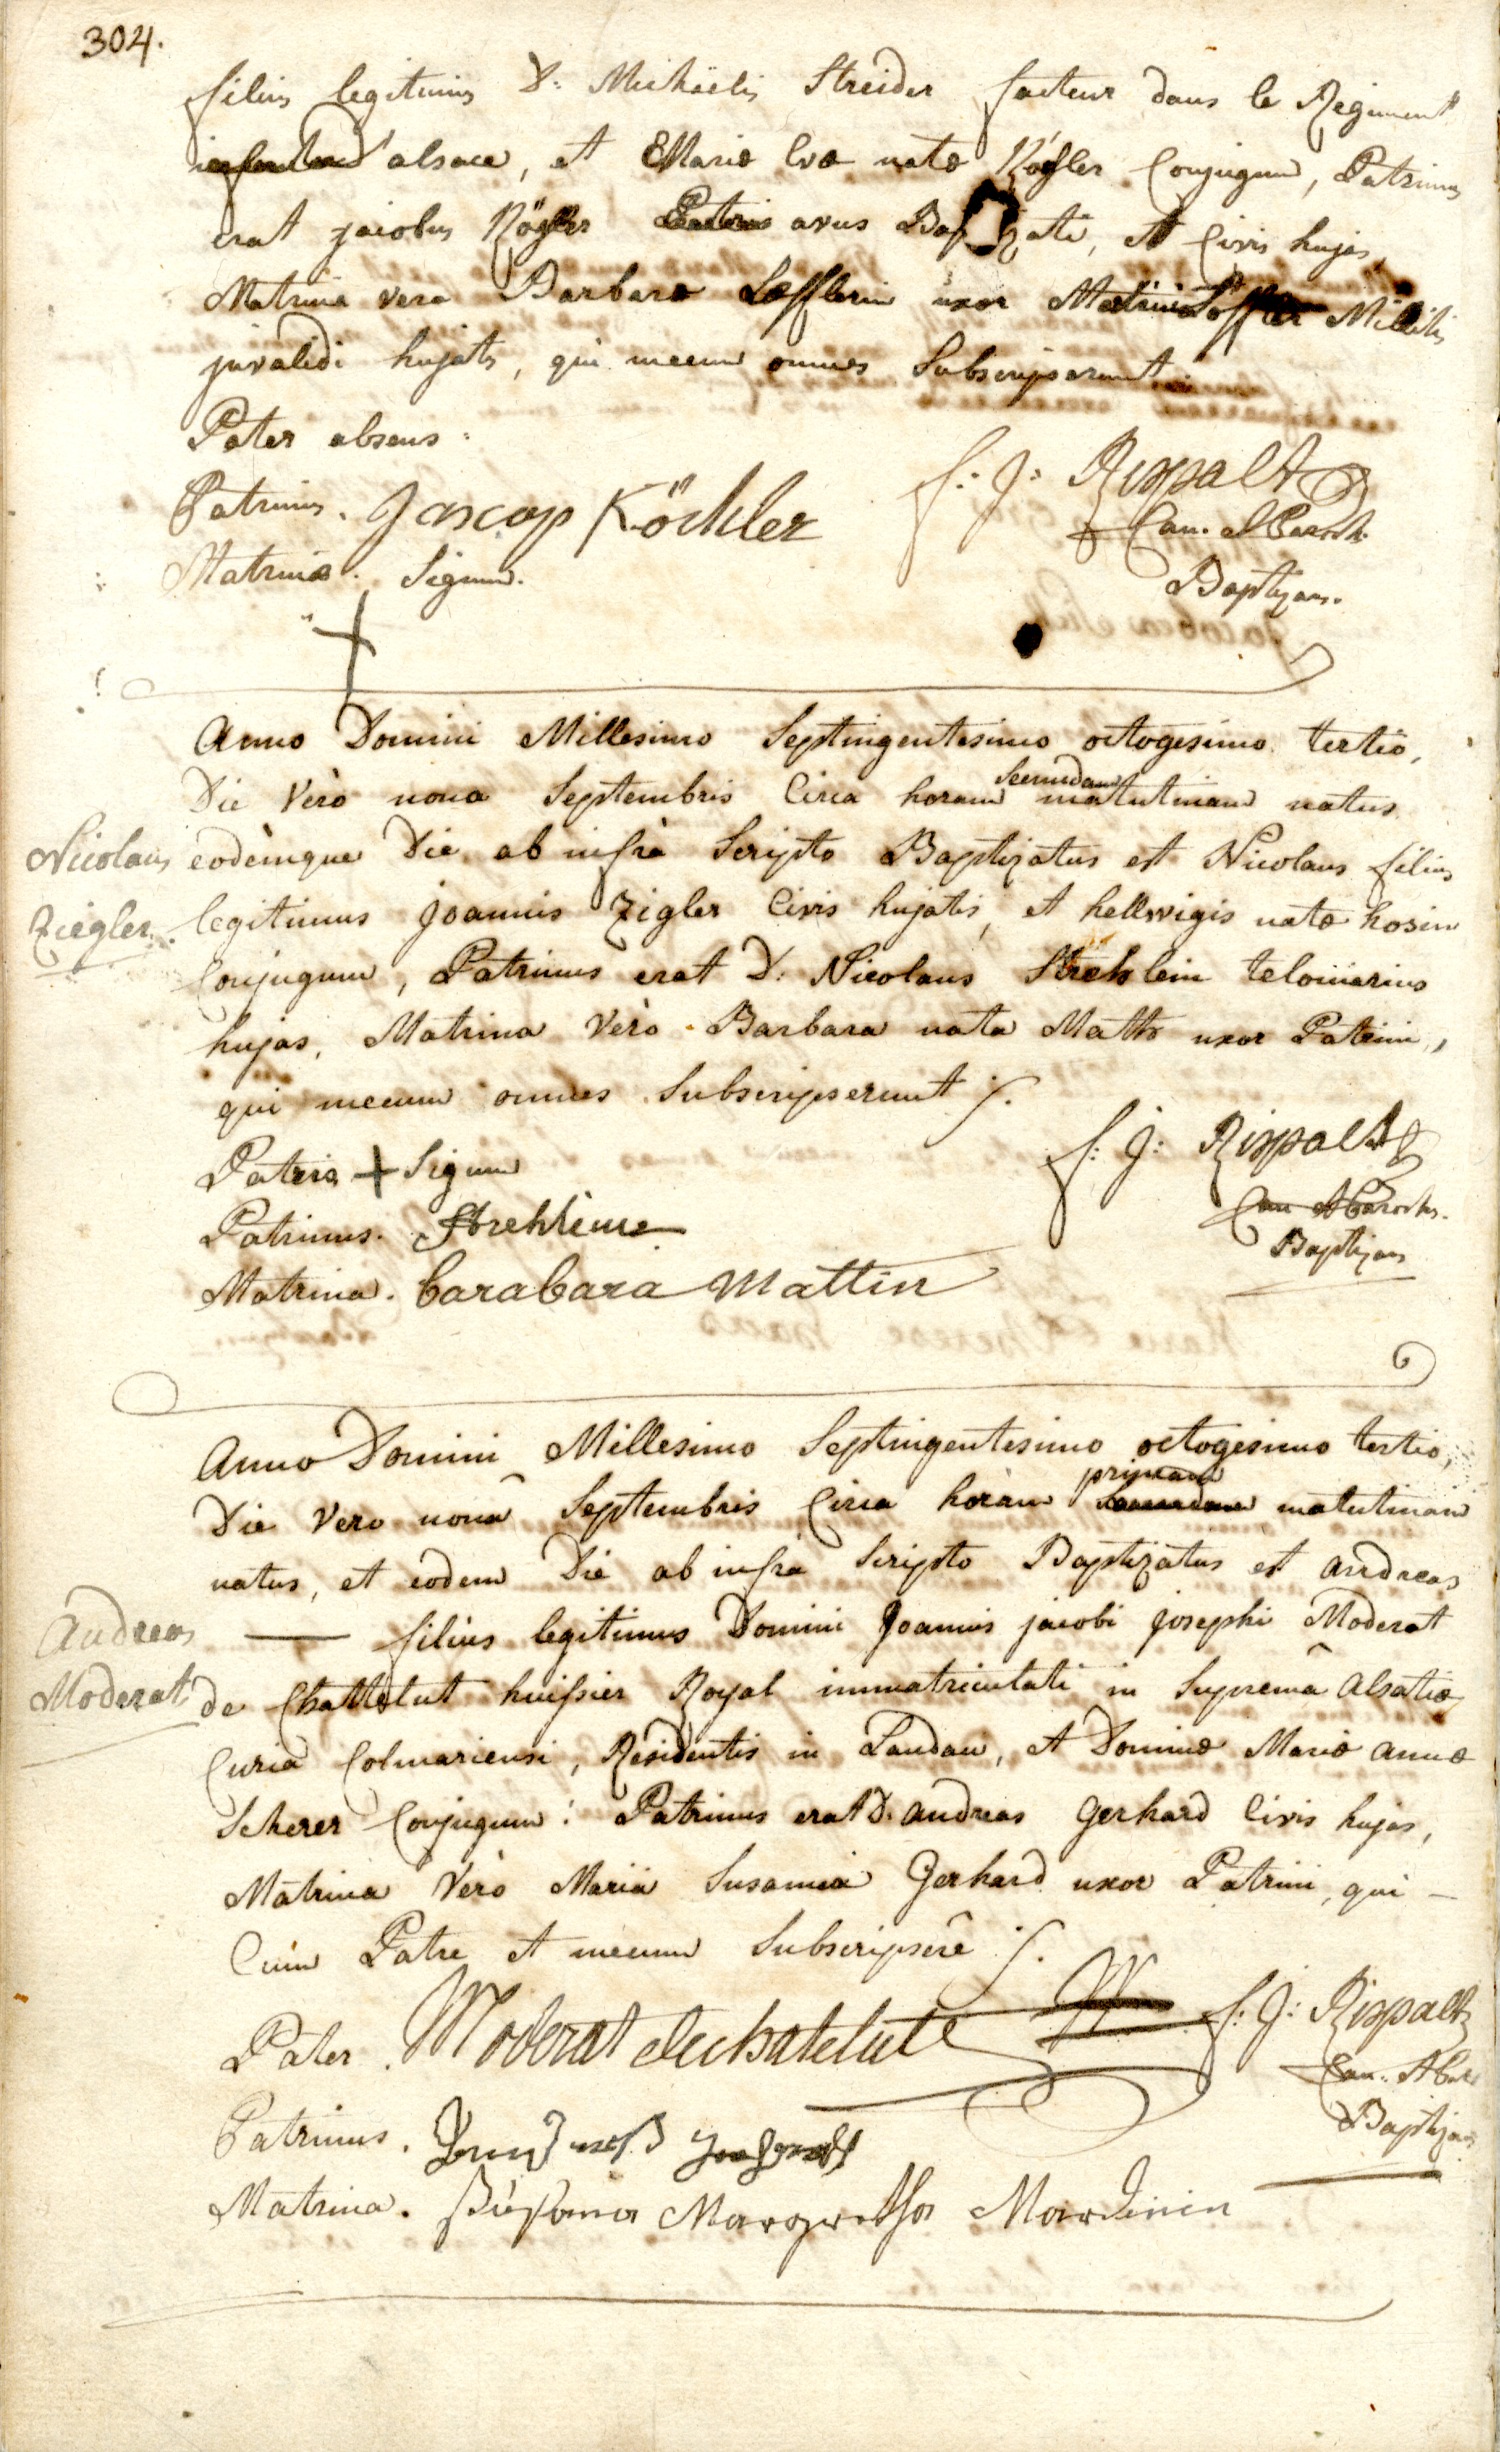 304.
filius legitimus D: Michäelis Streider facteur dans le Regiment
d'alsace, et Mariæ Evæ natæ Kögler Conjugum, Patrinus
erat jacobus Kögler avus Baptizati, et Civis hujas,
Matrina vero Barbara Læfflerin uxor Martini Löffler Militis
jnvalidi hujatis, qui mecum omnes Subscripserunt.
Pater absens:
Patrinus. Jascop Köchler
Matrinæ. Signum.
+
f: J: Rixpalt
Can. et Paroch.
Baptizans.
Anno Domini Millesimo Septingentesimo octogesimo tertiò,
Die Verò nona Septembris Circa horam Secundam matutinam natus
eodèmque Die ab infrà Scripto Baptizatus est Nicolaus filius
Nicolaus
Ziegler.
legitimus Joannis Zigler Civis hujatis, et hellwigis natæ hosin
Conjugum, Patrinus erat D: Nicolaus Strehlein teloniarius
hujas, Matrina Verò Barbara nata Matth uxor Patrini,
qui mecum omnes Subscripserunt ./.
Patris + Signum
Patrinus. Strehleine
Matrina. barabara Mattin
f: J: Rixpalt
Can et Parochs.
Baptizans
Anno Domini Millesimo Septingentesimo octogesimo tertio,
Die Vero nona Septembris Circa horam primam Secundam matutinam
natus, et eodem Die ab infra Scripto Baptizatus est andreas
Andreas
Moderat
— filius legitimus Domini Joannis jacobi josephi Moderat
de Chattelut huissier Royal immatriculati in Supremâ Alsatiæ
Curiâ Colmariensi, Residentis in Landau, et Dominæ Mariæ annæ
Scherer Conjugum: Patrinus erat D. andreas Gerhard Civis hujas,
Matrina Verò Maria Susanna Gerhard uxor Patrini, qui —
Cum Patre et mecum Subscripsêre ./.
Pater. Moderat dechatelut
f: J: Rixpalt
Can. et
Baptizans
Patrinus.
Matrina. Susanna Margretha Mardinin